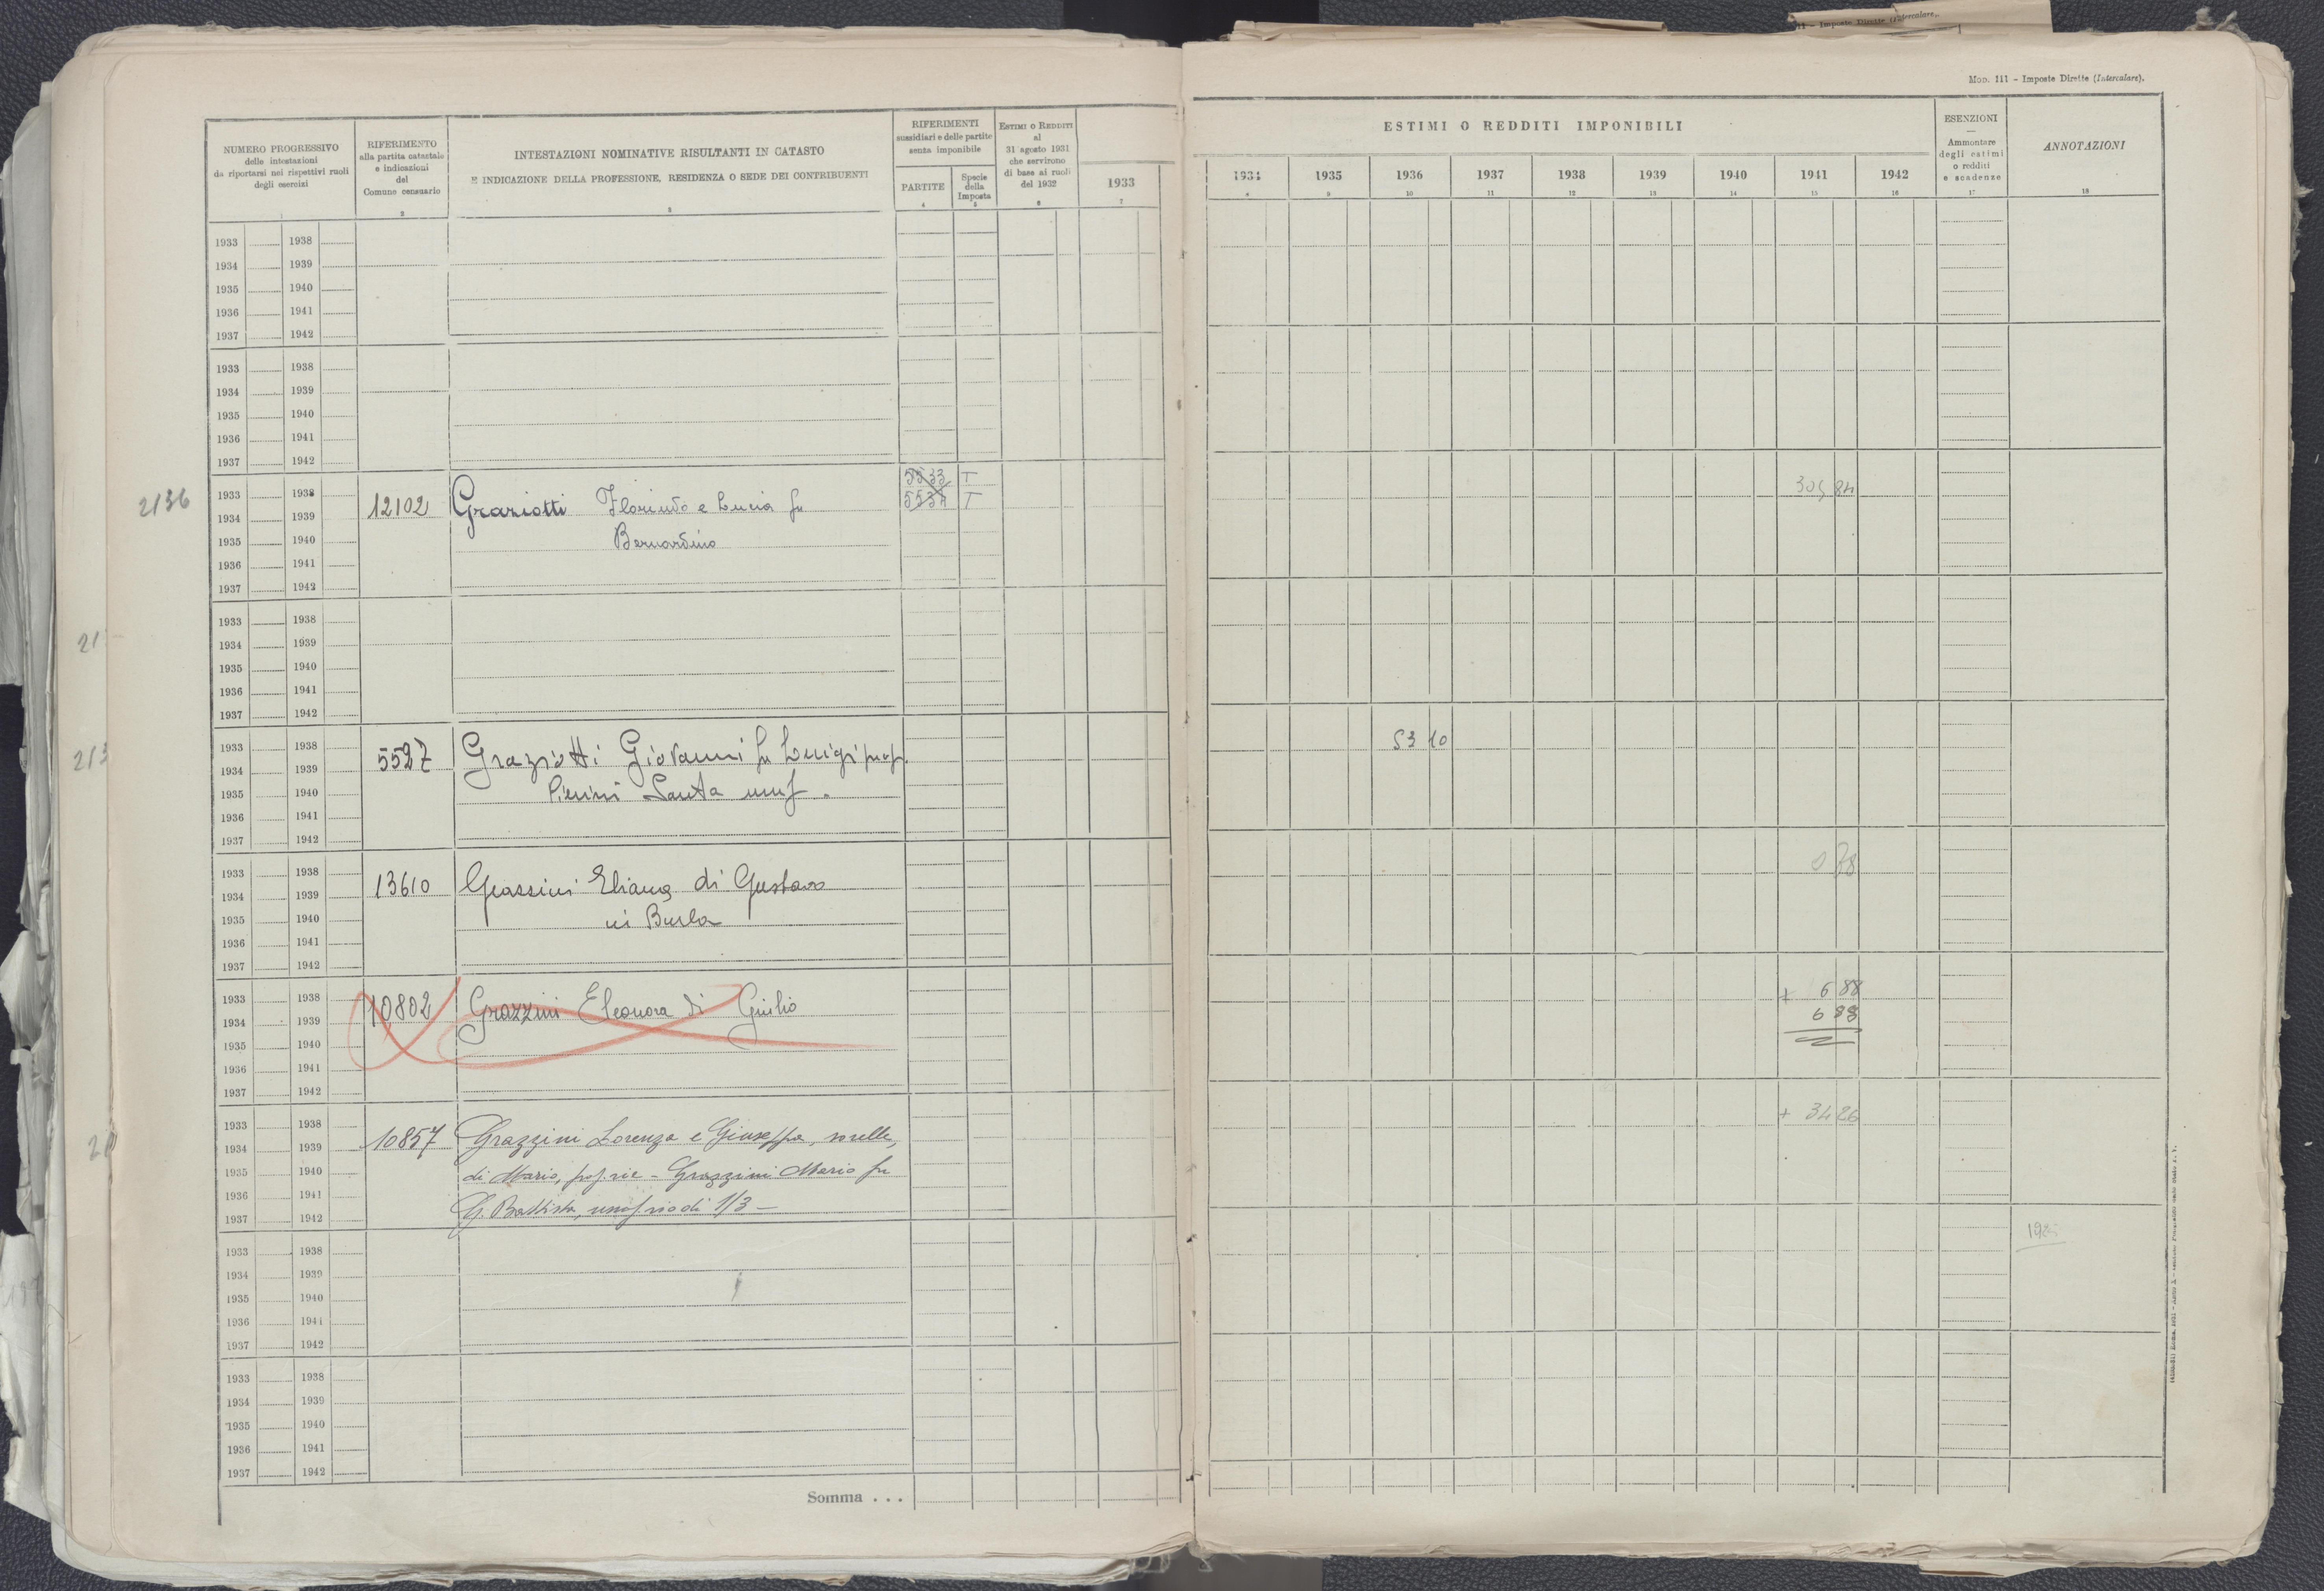 Mod. 111 - Imposte Dirette (Intercalare).
NUMERO PROGRESSIVO
delle intestazioni
da riportarsi nei rispettivi ruoli
degli esercizi
1
RIFERIMENTO
alla partita catastale
e indicazioni
del
Comune censuario
2
INTESTAZIONI NOMINATIVE RISULTANTI IN CATASTO
E INDICAZIONE DELLA PROFESSIONE, RESIDENZA O SEDE DEI CONTRIBUENTI
3
RIFERIMENTI
sussidiari e delle partite
senza imponibile
PARTITE
4
Specie
della
Imposta
5
ESTIMI O REDDITI
al
31 agosto 1931
che servirono
di base ai ruoli
del 1932
6
1933
7
ESTIMI O REDDITI IMPONIBILI
1934 1935 1936 1937 1938 1939 1940 1941 1942
8 9 10 11 12 13 14 15 16
ESENZIONI
Ammontare
degli estimi
o redditi
e scadenze
17
ANNOTAZIONI
18
1933 1938
1934 1939
1935 1940
1936 1941
1937 1942
1933 1938
1934 1939
1935 1940
1936 1941
1937 1942
5533 T
2136
1933 1938
5534 T
1934 1939 12102 Graziotti Florindo e Lucia fu
1935 1940 Bernardino
1936 1941
1937 1942
1933 1938
1934 1939
1935 1940
1936 1941
1937 1942
1933 1938 53 10
1934 1939 5527 Graziotti Giovanni fu Luigi prop.
1935 1940 Pierini Santa usuf.
1936 1941
1937 1942
1933 1938 0 78
1934 1939 13610 Grassini Eliana di Gustavo
1935 1940 in Burla
1936 1941
1937 1942
1933 1938 + 6 88
1934 1939 10802 Grazzini Eleonora di Giulio 6 88
1935 1940
1936 1941
1937 1942
1933 1938 + 34 26
1934 1939 10857 Grazzini Lorenza e Giuseppa, sorelle,
1935 1940 di Mario, prop.rie - Grazzini Mario fu
1936 1941
1937 1942 G. Battista, usuf.rio di 1/3 -
1933 1938
1934 1939
1935 1940
1936 1941
1937 1942
1933 1938
1934 1939
1935 1940
1936 1941
1937 1942
Somma . . .